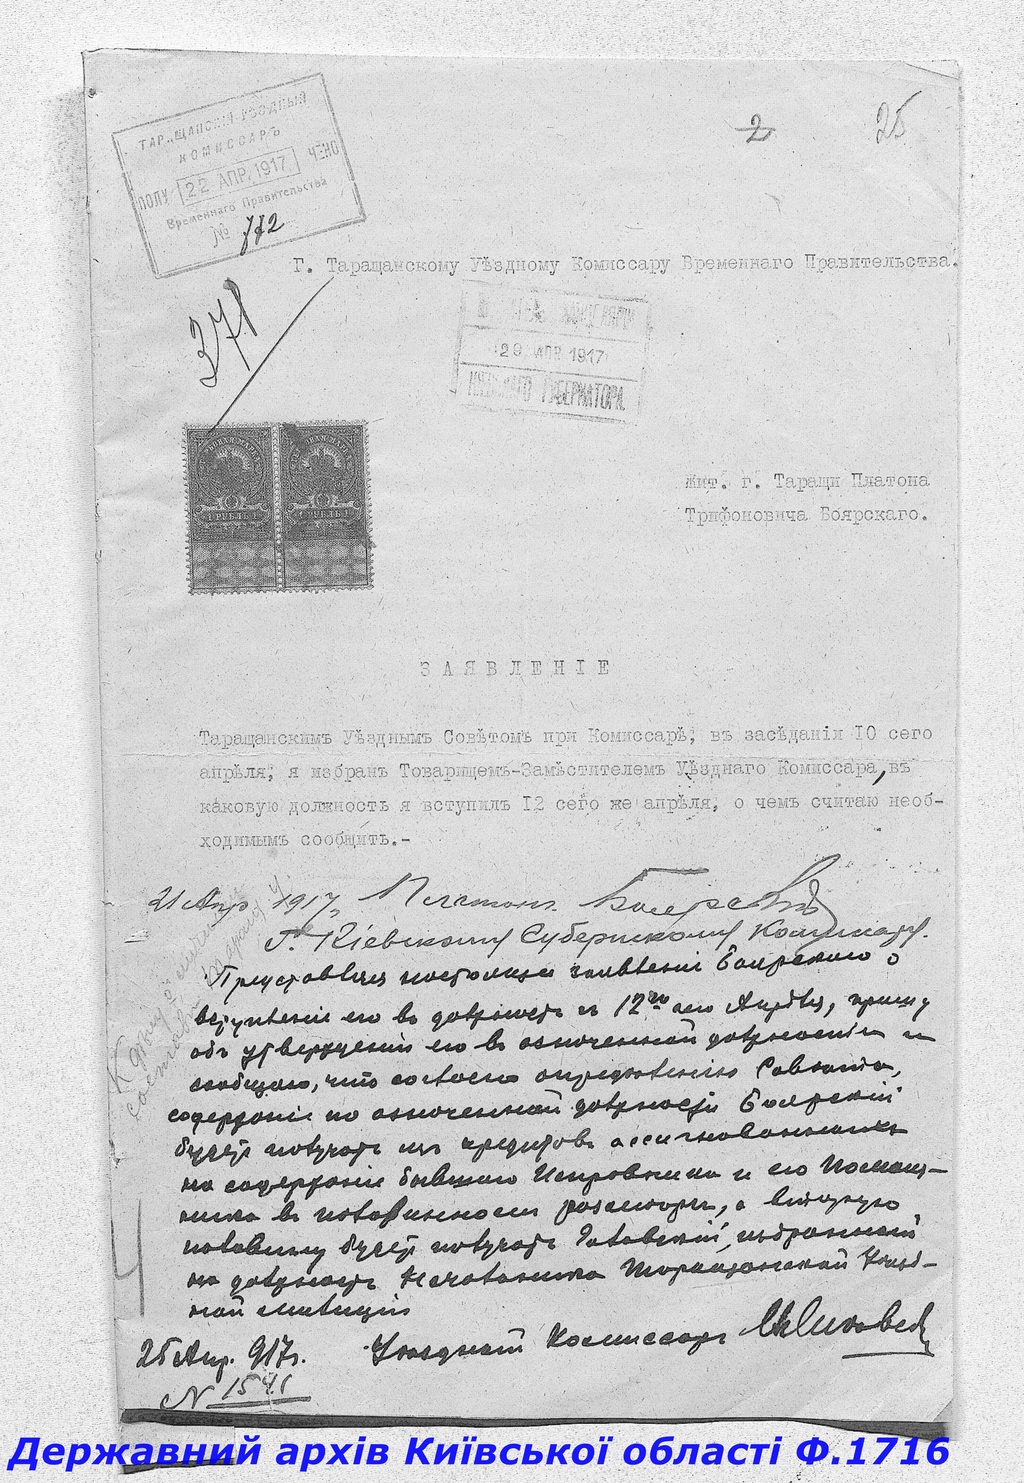 ТАРАЩАНСКИЙ УѢЗДНЫЙ
КОМИССАРЪ
ПОЛУ 22 АПР. 1917 ЧЕНО
Временнаго Правительства
№ 772
2
25
Г. Таращанскому Уѣздному Комиссару Временнаго Правительства.
29 АПР 1917
ГУБЕРНАТОРА.
1 РУБЛЬ 1 1 РУБЛЬ 1
Жит. г. Таращи Платона
Трифоновича Боярскаго.
ЗАЯВЛЕНІЕ
Таращанскимъ Уѣзднымъ Совѣтомъ при Комиссарѣ, въ засѣданіи 10 сего
апрѣля, я избранъ Товарищемъ-Замѣстителемъ Уѣзднаго Комиссара, въ
каковую должность я вступилъ 12 сего же апрѣля, о чемъ считаю необ-
ходимымъ сообщить.-
21 Апр 1917 г. Платонъ Боярскій
Г. Кіевскому Губернскому Комиссару.
Представляя настоящее заявленіе Боярскаго о
вступленіи его въ должность съ 12го сего Апрѣля, прошу
объ утвержденіи его въ означенной должности и
сообщаю, что согласно опредѣленію Совѣта,
содержаніе по означенной должности Боярскій
будетъ получать изъ кредитовъ ассигнованныхъ
на содержаніе бывшаго Исправника и его Помощ-
ника въ половинномъ размѣрѣ, а вторую
половину будетъ получать избранный
на должность Начальника Таращанской Уѣзд-
ной милиціи
25 Апр. 917 г. Уѣздный Комиссаръ
N 1541
Державний архів Київської області Ф.1716